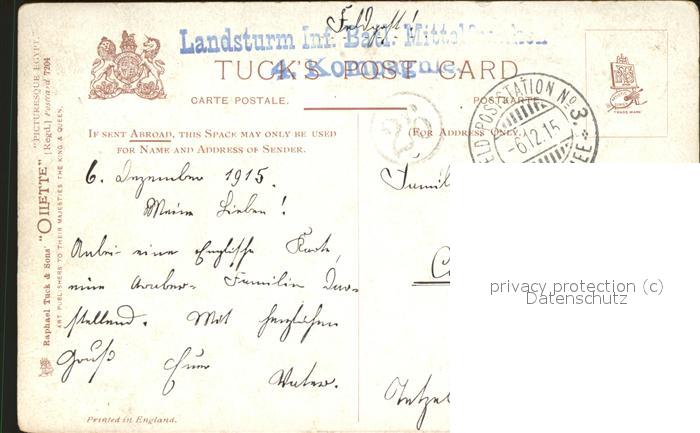 Feldpost!
Landsturm Inf. Batl. Mittelfranken
4. Kompagnie.
TUCK'S POST CARD
CARTE POSTALE.
POSTKARTE
TRADE MARK
IF SENT ABROAD, THIS SPACE MAY ONLY BE USED
FOR NAME AND ADDRESS OF SENDER.
(FOR ADDRESS ONLY.)
FELD-POSTSTATION No 3
-6.12.15
Raphael Tuck & Sons' "OILETTE" [Regd.] Postcard 7204
"PICTURESQUE EGYPT."
ART PUBLISHERS TO THEIR MAJESTIES THE KING & QUEEN.
6. Dezember 1915.
Meine Lieben!
Anbei eine Englische Karte,
eine Araber-Familie dar-
stellend. Mit herzlichem
Gruß Euer
Vater.
Famil
Printed in England.
privacy protection (c)
Datenschutz